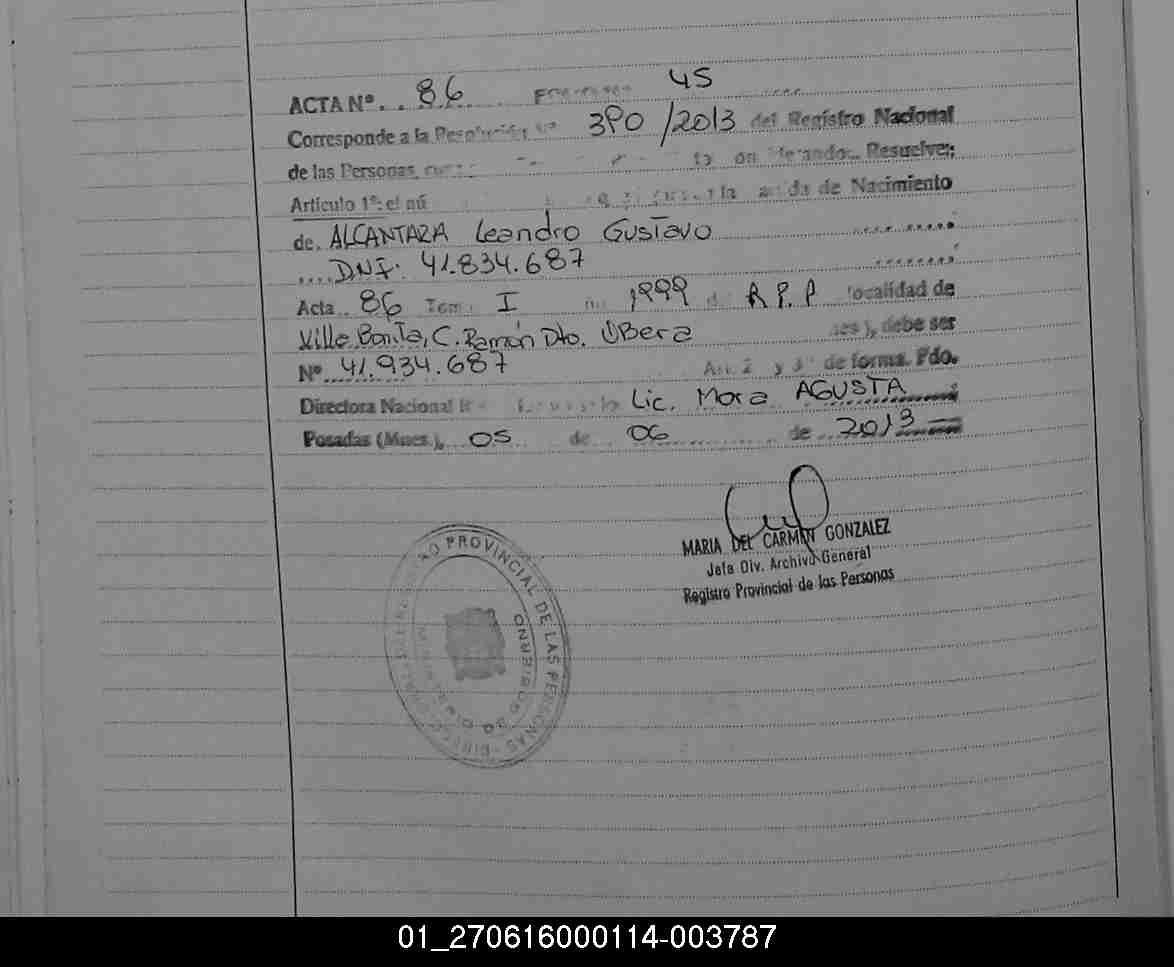 ACTA Nº 86 45
Corresponde a la Resolución Nº 390/2013 del Registro Nacional
de las Personas, Resuelve:
Artículo 1º: el nú la de Nacimiento
de. ALCANTARA Leandro Gustavo
DNI: 41.834.687
Acta 86 Tomo I 1999 R.P.P localidad de
Villa Bonita, C. Ramón Dto. Obera debe ser
Nº 41.934.687 Art. 2 y 3º de forma. Fdo.
Directora Nacional Lic. Mora AGUSTA
Posadas (Mnes.), 05 de 06 de 2013
MARIA DEL CARMEN GONZALEZ
Jefa Div. Archivo General
Registro Provincial de las Personas
PROVINCIAL DE LAS PERSONAS
GOBIERNO
01_270616000114-003787